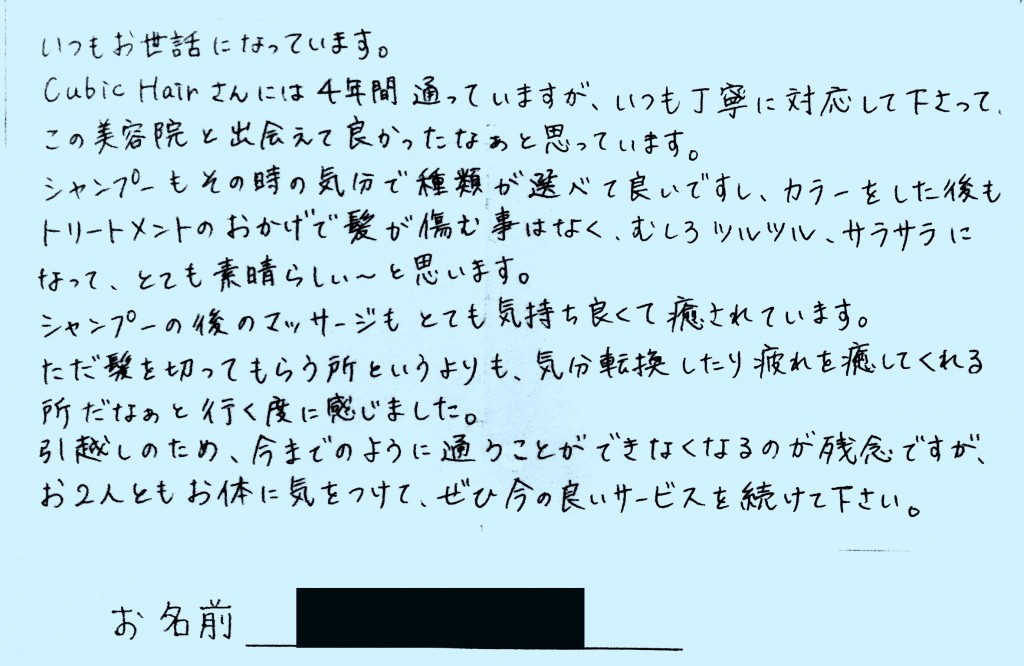 いつもお世話になっています。
Cubic Hairさんには4年間通っていますが、いつも丁寧に対応して下さって、
この美容院と出会えて良かったなぁと思っています。
シャンプーもその時の気分で種類が選べて良いですし、カラーをした後も
トリートメントのおかげで髪が傷む事はなく、むしろツルツル、サラサラに
なって、とても素晴らしい〜と思います。
シャンプーの後のマッサージもとても気持ち良くて癒されています。
ただ髪を切ってもらう所というよりも、気分転換したり疲れを癒してくれる
所だなぁと行く度に感じました。
引越しのため、今までのように通うことができなくなるのが残念ですが、
お2人ともお体に気をつけて、ぜひ今の良いサービスを続けて下さい。
お名前